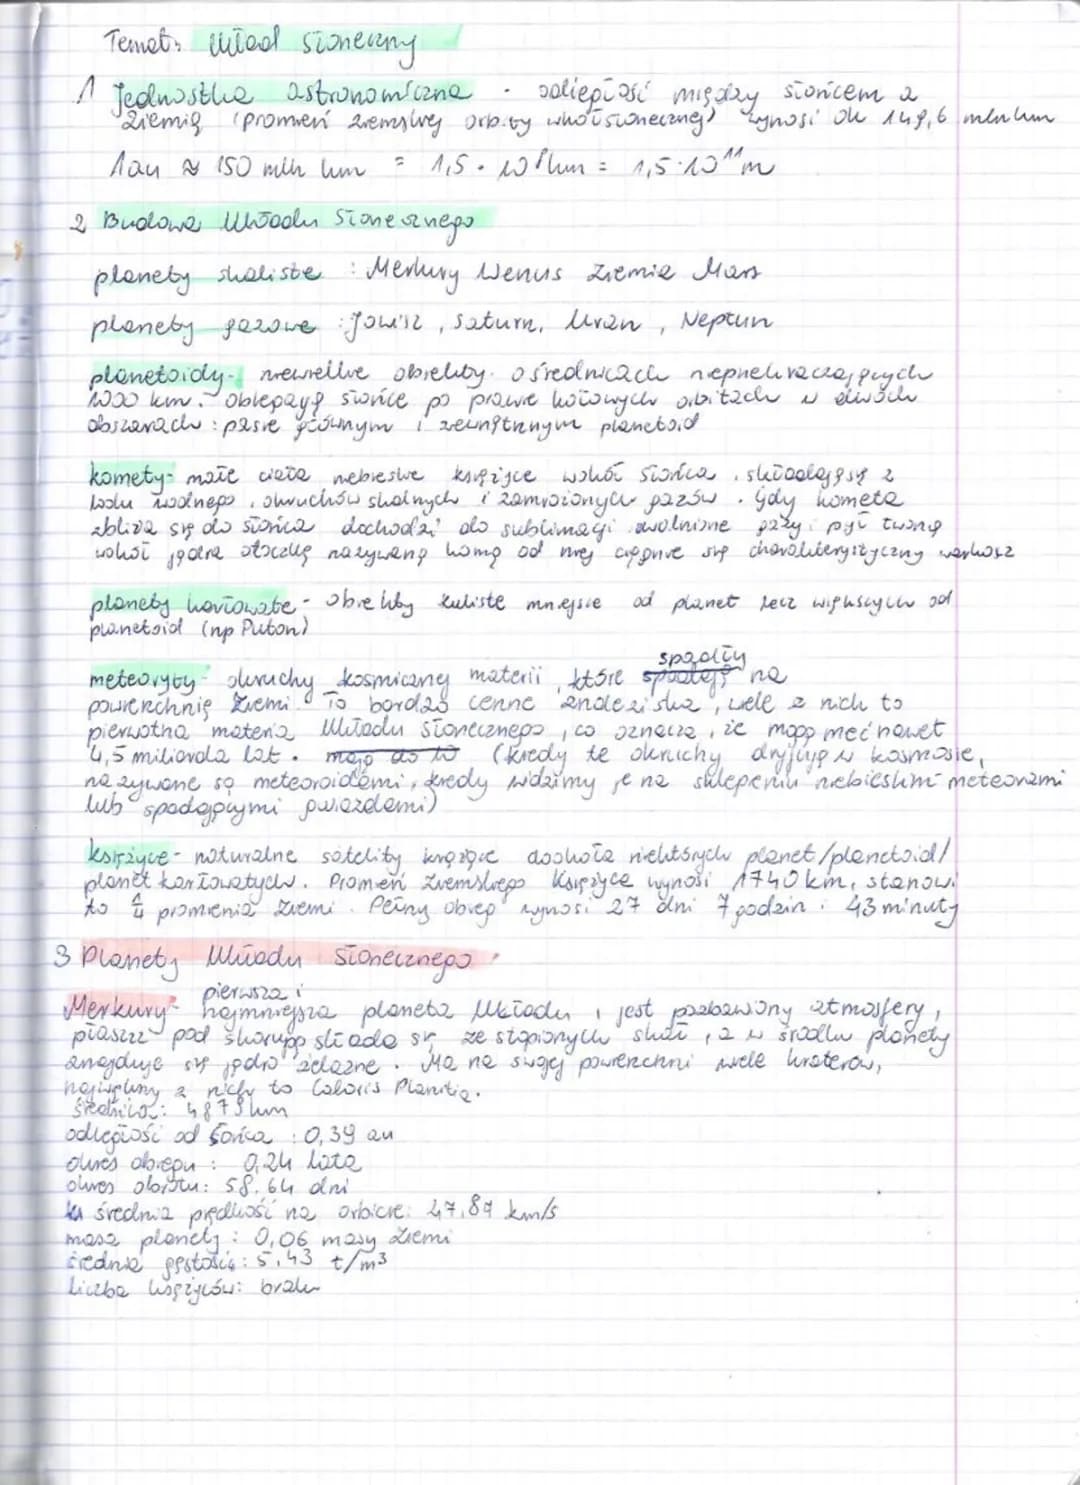 Temat: Układ słoneczny
1 Jednostka astronomiczna - odległość między słońcem a
Ziemią (promień ziemskiej orbity wkołosłonecznej) wynosi ok 149,6 mln km
1au ≈ 150 mln km = 1,5 · 10⁸ km = 1,5 · 10¹¹ m
2 Budowa Układu Słonecznego
planety skaliste : Merkury Wenus Ziemia Mars
planety gazowe : Jowisz, Saturn, Uran, Neptun
planetoidy - niewielkie obiekty o średnicach nieprzekraczających
1000 km. Oblegają słońce po prawie kołowych orbitach w dwóch
obszarach : pasie głównym i zewnętrznym planetoid
komety - małe ciała niebieskie krążące wokół Słońca, składają się z
lodu wodnego, okruchów skalnych i zamrożonych gazów. Gdy kometa
zbliża się do słońca dochodzi do sublimacji uwolnione gazy i pył tworzą
wokół jądra otoczkę nazywaną komą od niej ciągnie się charakterystyczny warkocz
planety karłowate - obiekty kuliste mniejsze od planet lecz większych od
planetoid (np Pluton)
meteoryty - okruchy kosmicznej materii, które spadły na
powierzchnię Ziemi. To bardzo cenne znaleziska, wiele z nich to
pierwotna materia Układu Słonecznego, co oznacza, że mogą mieć nawet
4,5 miliarda lat. mają do to (kiedy te okruchy dryfują w kosmosie,
nazywane są meteoroidami, kiedy widzimy je na sklepieniu niebieskim meteorami
lub spadającymi gwiazdami)
księżyce - naturalne satelity krążące dookoła niektórych planet/planetoid/
planet karłowatych. Promień Ziemskiego Księżyca wynosi 1740 km, stanowi
to ¼ promienia Ziemi. Pełny obieg wynosi 27 dni 7 godzin i 43 minuty
3 Planety Układu Słonecznego
Merkury - pierwsza i najmniejsza planeta Układu, jest pozbawiony atmosfery,
płaszcz pod skorupą składa się ze stopionych skał, a w środku planety
znajduje się jądro żelazne. Ma na swojej powierzchni wiele kraterów,
największy z nich to Caloris Planitia.
średnica: 4879 km
odległość od słońca : 0,39 au
okres obiegu : 0,24 lata
okres obrotu: 58,64 dni
średnia prędkość na orbicie: 47,87 km/s
masa planety : 0,06 masy Ziemi
średnia gęstość: 5,43 t/m³
liczba księżyców: brak